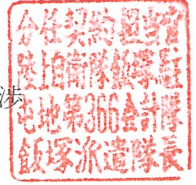 分任契約担当官
陸上自衛隊飯塚駐
屯地第366会計隊
飯塚派遣隊長
法